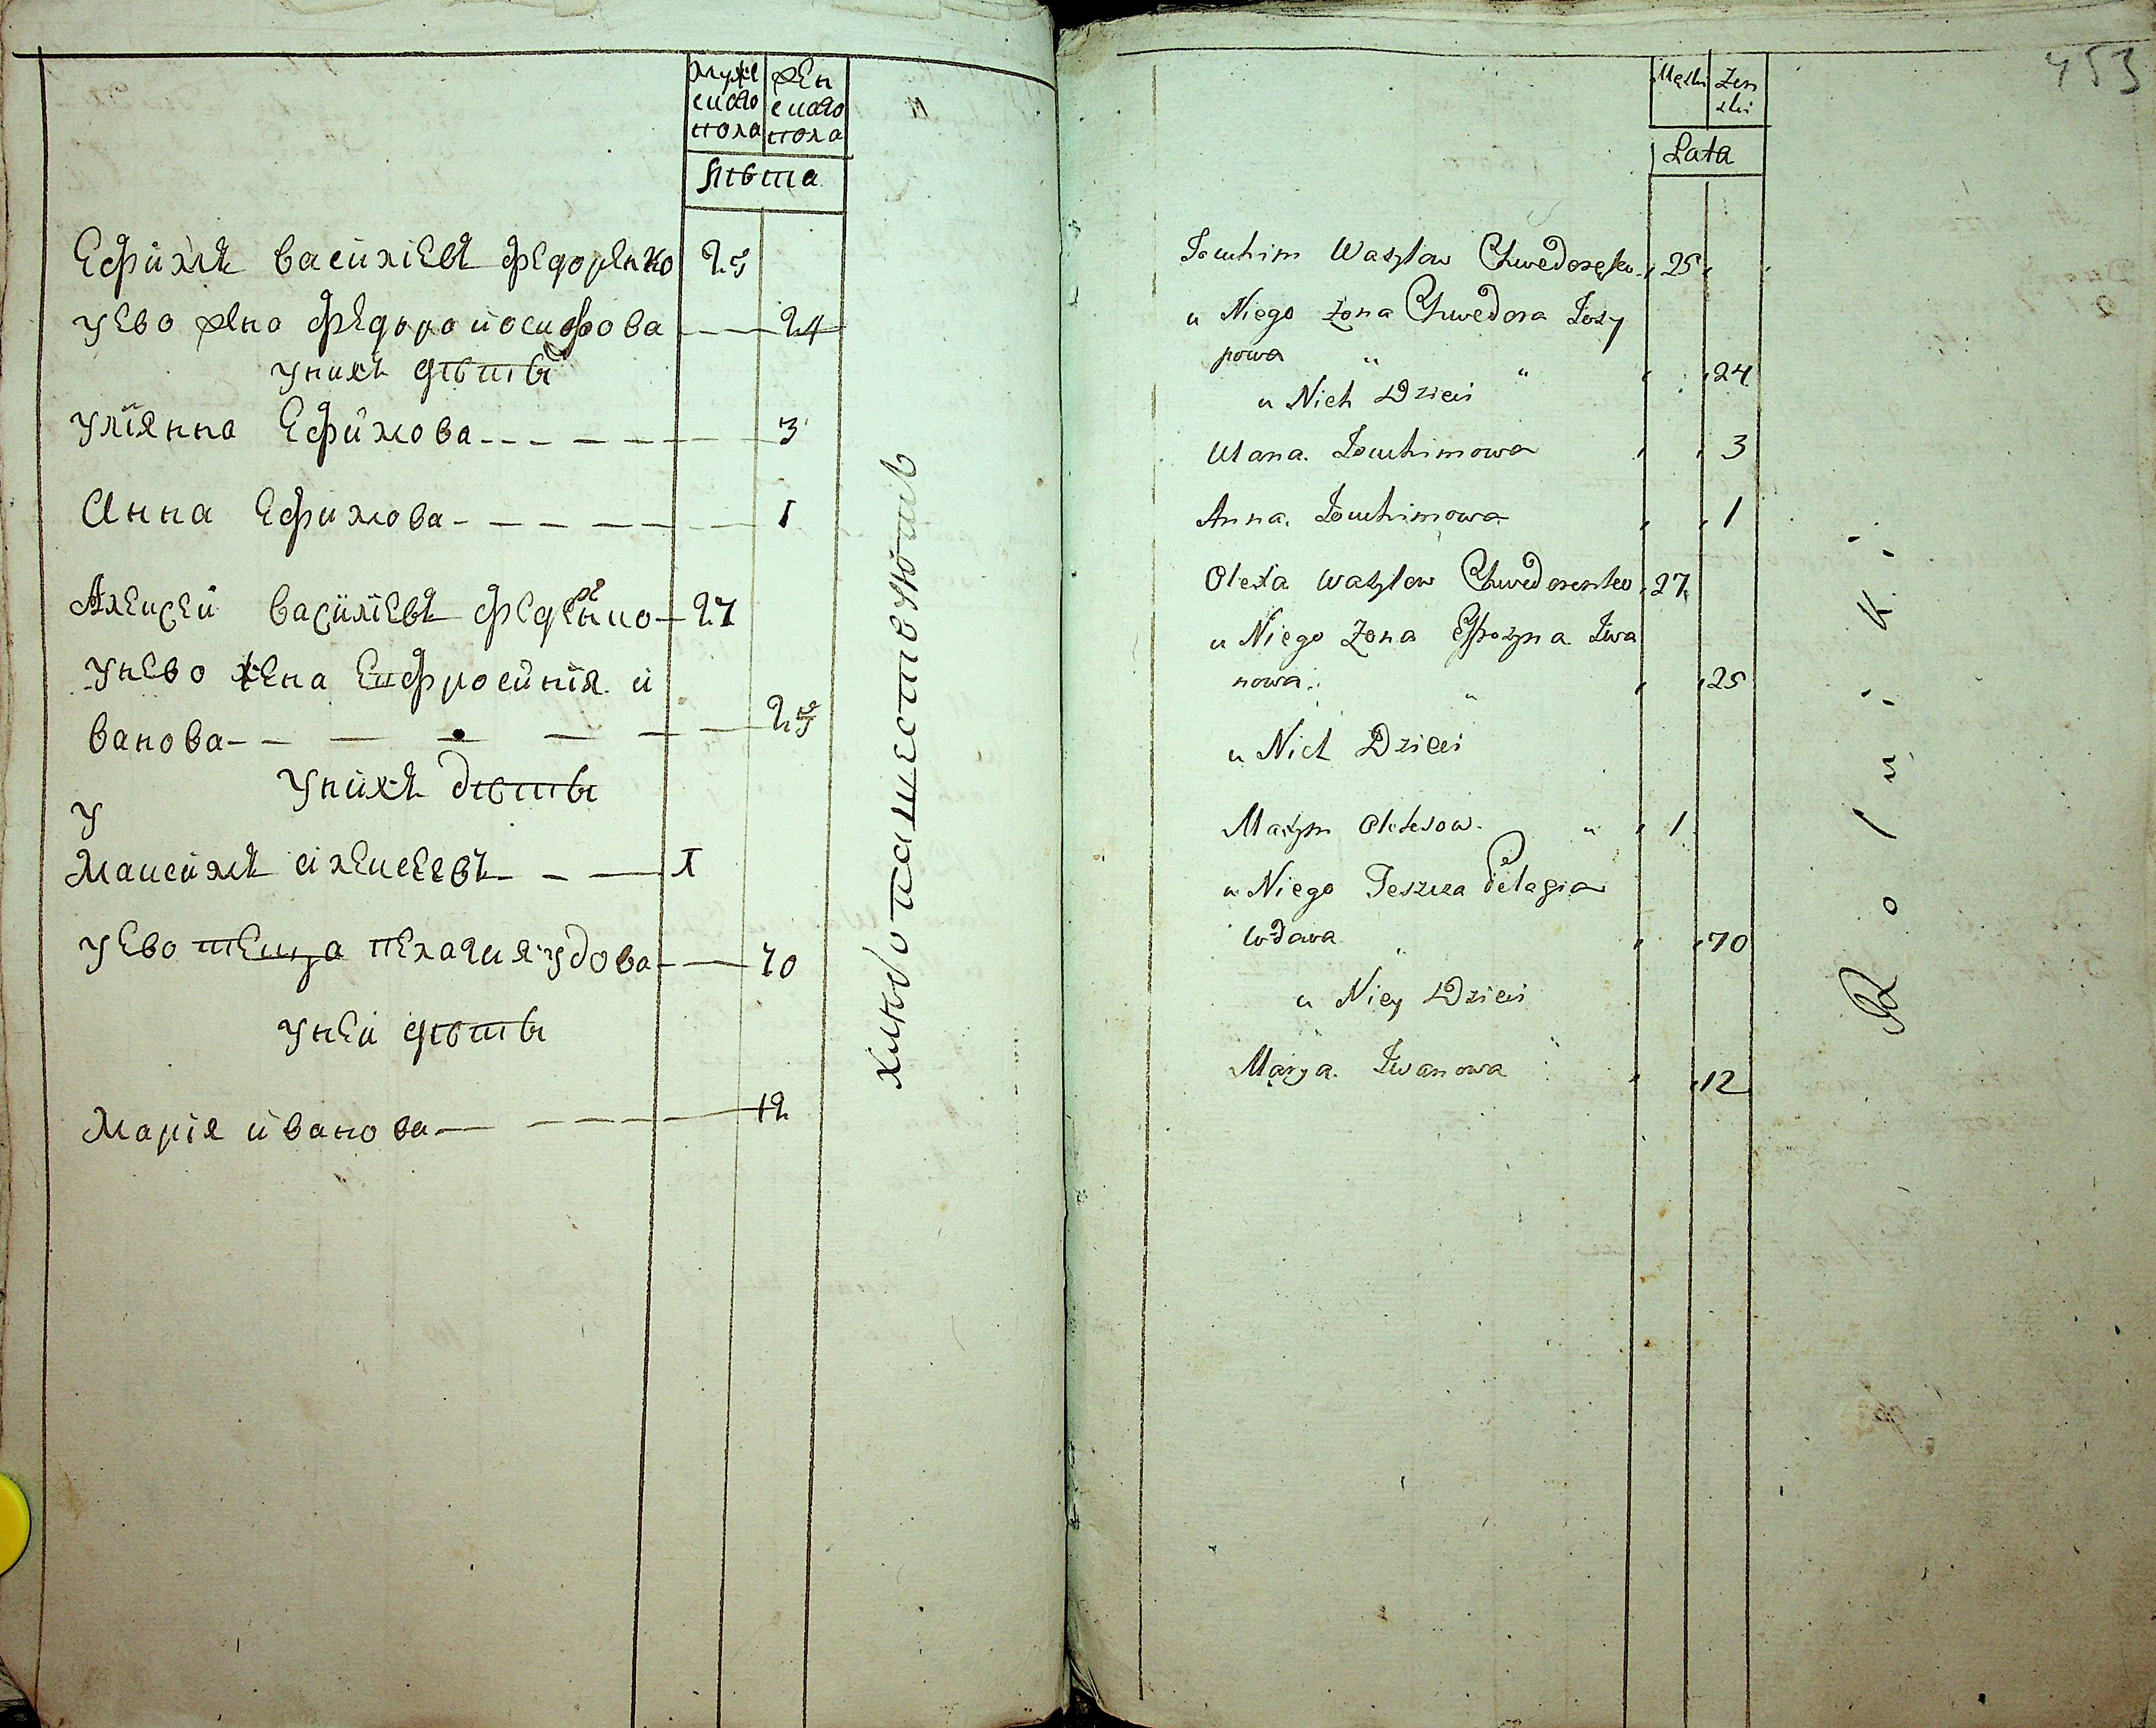 муже
ского
пола
жен
ского
пола
лѣта
Ефимъ василіевъ федоренко 25
у ево жена федора йосифова 24
у нихъ дѣты
Уліянна Ефимова 3
Анна Ефимова 1
Алексей василіевъ федренко 27
у нево жена Евфросинія и
ванова 25
у нихъ дѣты
у
Максимъ алексеевъ 1
у ево теща пелагия удова 70
у ней дѣты
Марія иванова 12
хлѣбопашествуютъ
453
Męzki
Zen
ski
Lata
Jouchim Wasylow Chwedoręko 25
u Niego żona Chwedora Josy
powa 24
u Nich Dzieci
Ulana Jouchimowa 3
Anna Jouchimowa 1
Olexa Wasylow Chwedorenko 27
u Niego Zona Efrozyna Iwa
nowa 25
u Nich Dzieci
Maxym Olexsow 1
u Niego Teszcza Pelagia
wdowa 70
u Niey Dzieci
Marya Iwanowa 12
Rolniki